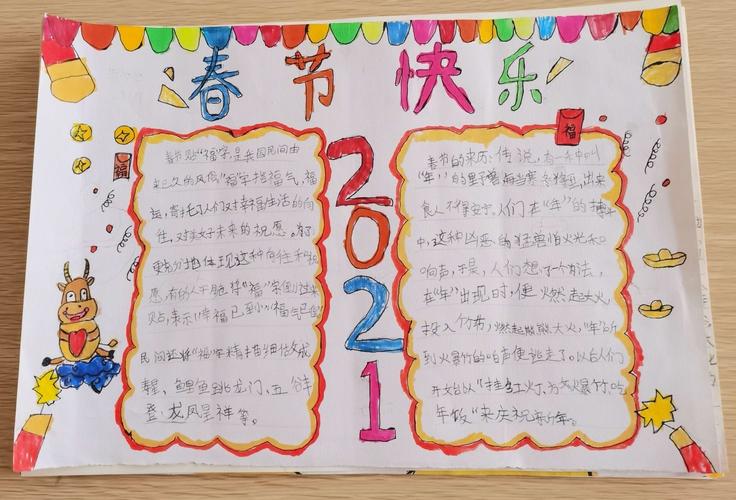 春节快乐
2021
福
福
春节贴"福"字,是我国民间由
来已久的风俗"福"字指福气,福
运,寄托了人们对幸福生活的向
往,对美好未来的祝愿。为了
更充分地体现这种向往和祝
愿,有的人干脆将"福"字倒过来
贴,表示"幸福已到""福气已到"
民间还将"福"字精描细做成
寿星,鲤鱼跳龙门、五谷丰
登、龙凤呈祥等。
春节的来历:传说,有一种叫
"年"的野兽每当寒冬将至,出来
食人不得安宁。人们在"年"的
中,这种凶恶的狂兽怕火光和
响声,于是,人们想了一个方法,
在"年"出现时,便燃起大火,
投入竹节,燃起熊熊大火,"年"听
到火爆竹的响声便逃走了。以后人们
开始以"挂红灯、放火爆竹、吃
年饭"来庆祝新年。